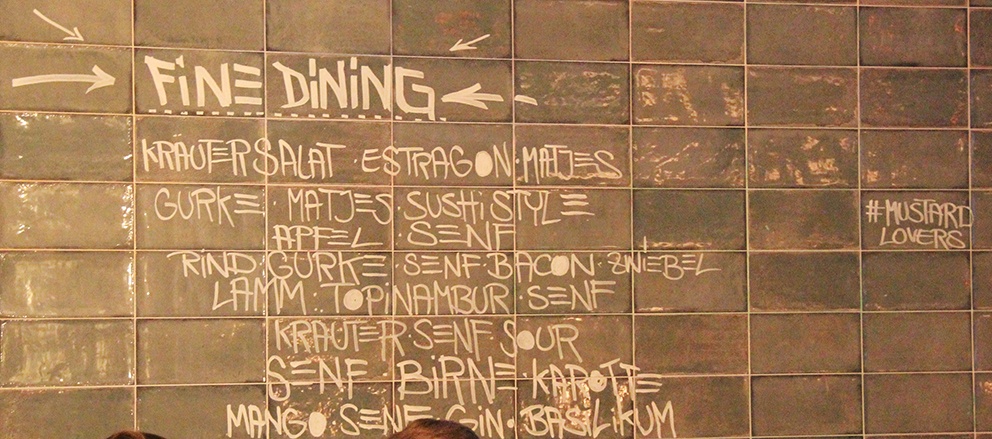 FINE DINING
KRAUTERSALAT · ESTRAGON · MATJES
GURKE · MATJES SUSHI STYLE
APFEL · SENF
#MUSTARD
LOVERS
RIND GURKE · SENF BACON · ZWIEBEL
LAMM · TOPINAMBUR · SENF
KRAUTER · SENF SOUR
SENF · BIRNE · KAROTTE
MANGO SENF GIN · BASILIKUM